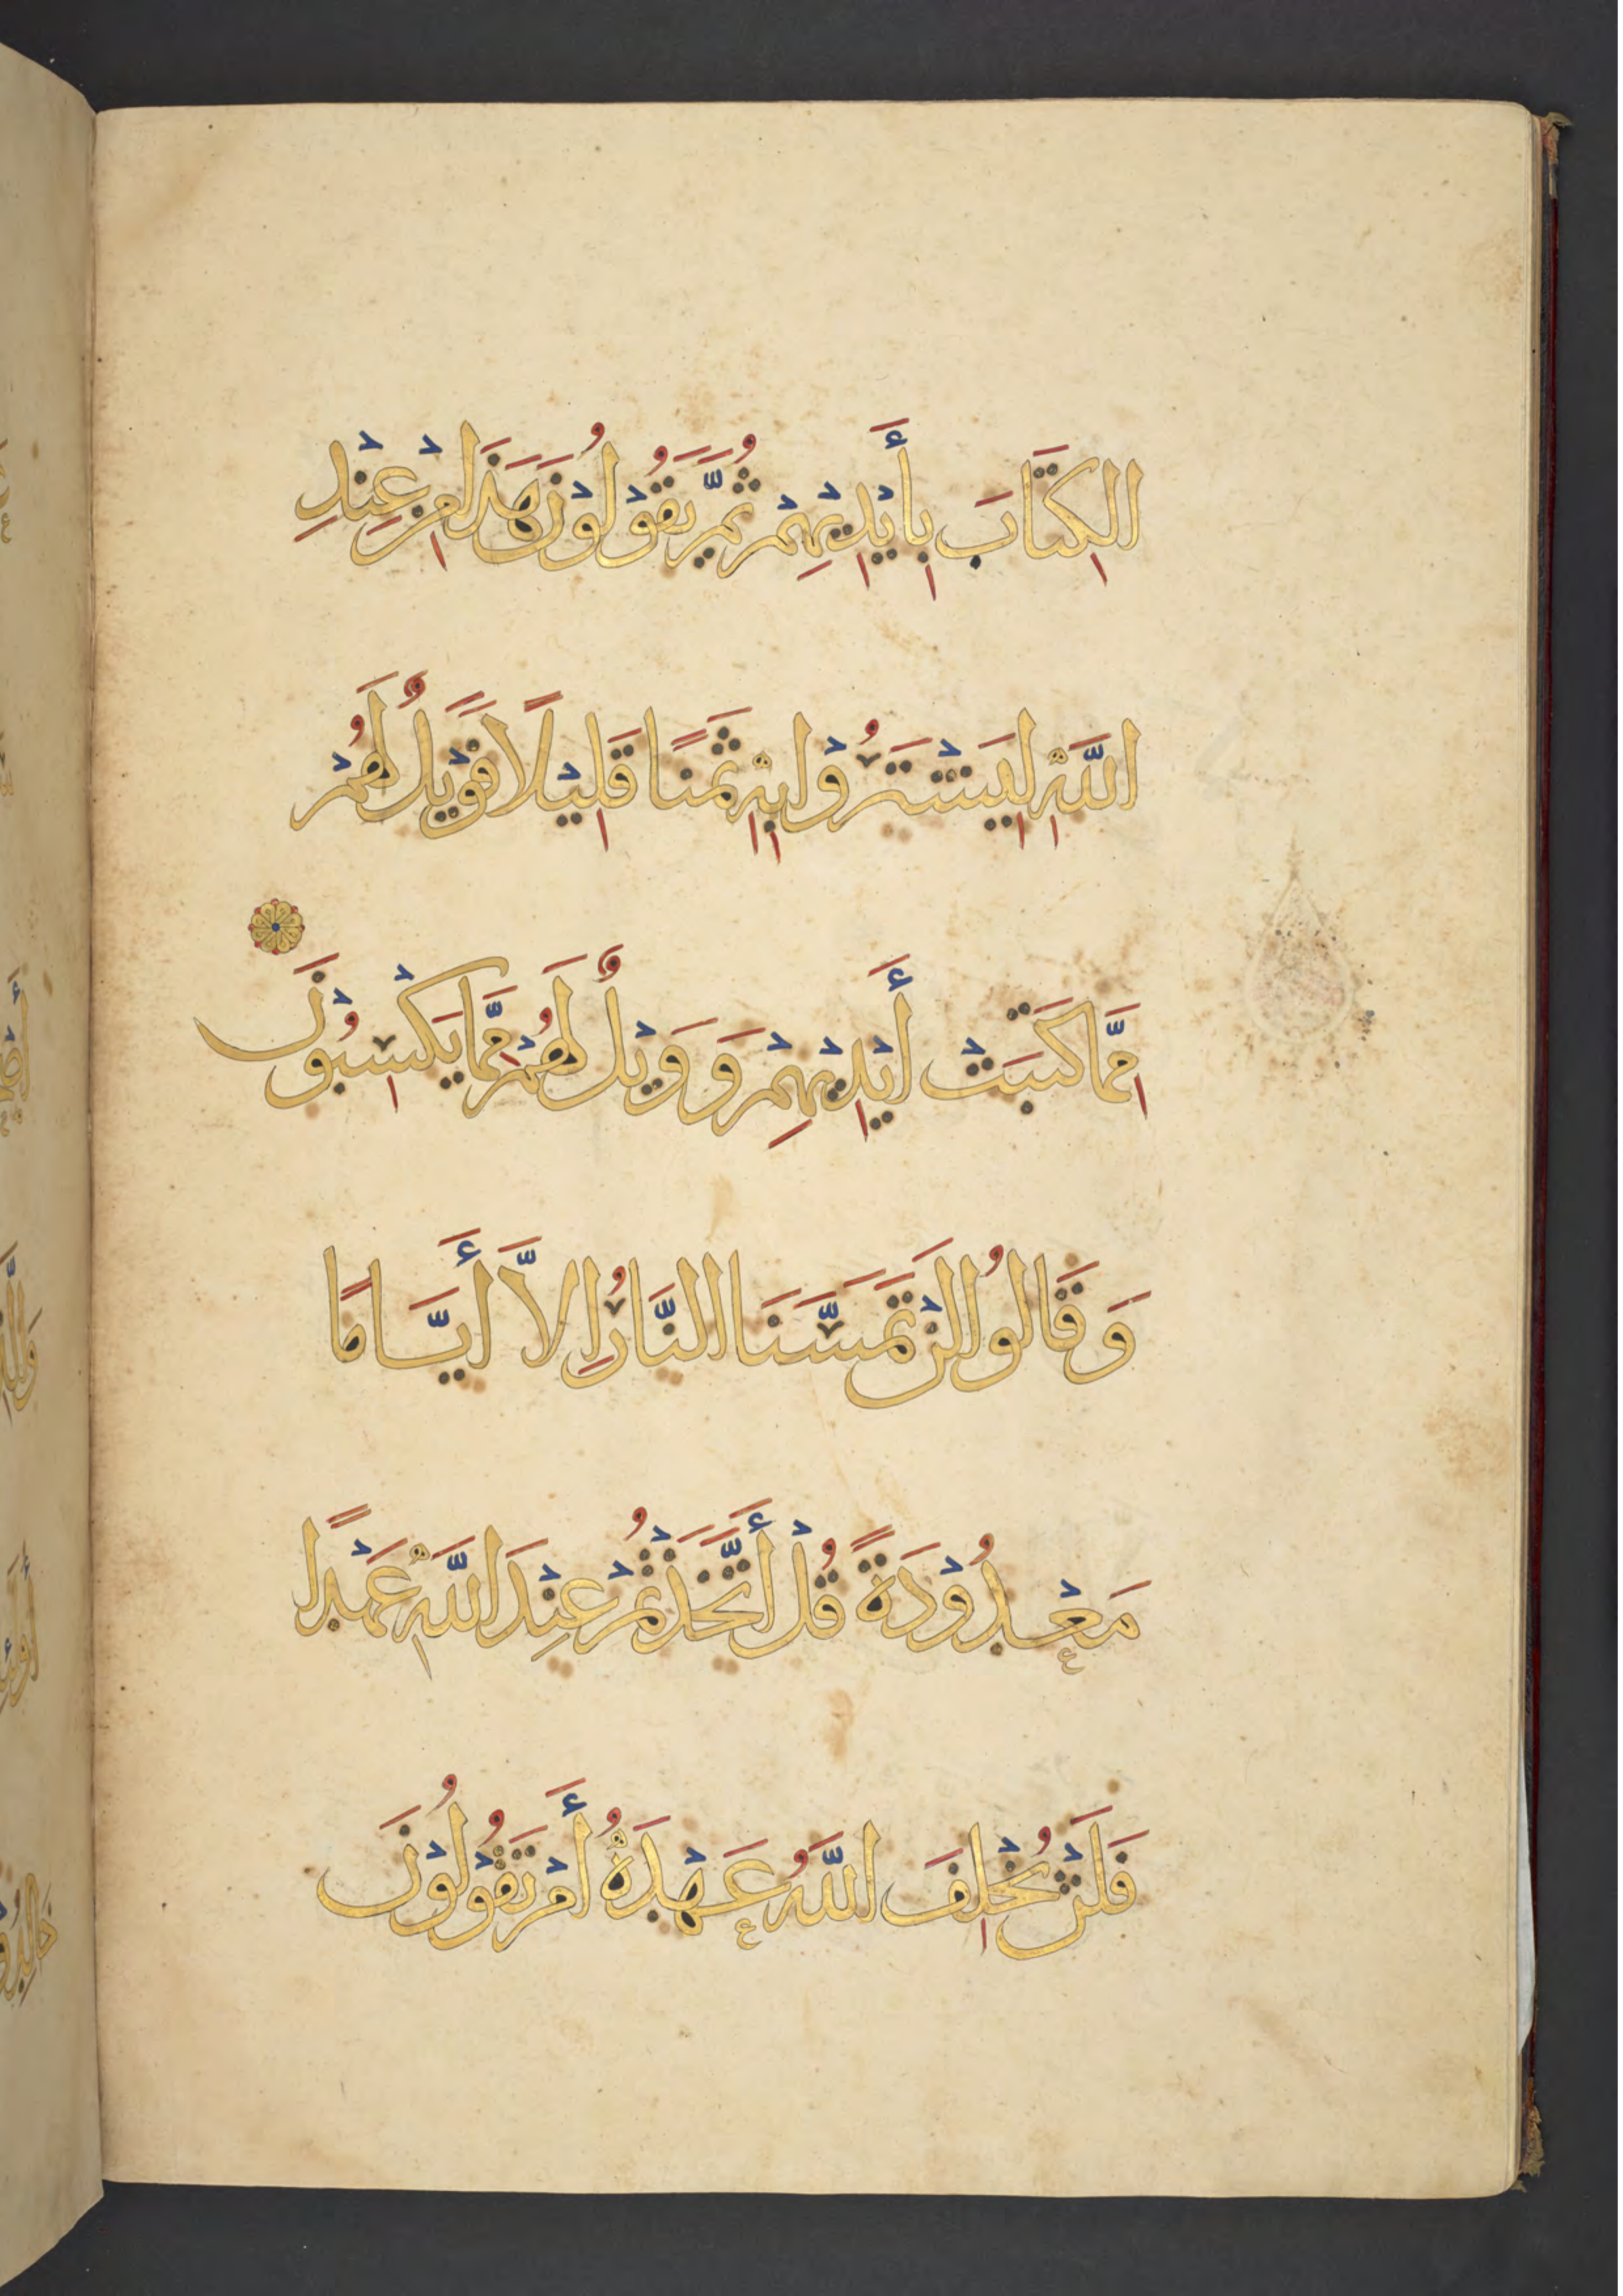 الكِتَابَ بِأَيْدِيْهِمْ ثُمَّ يَقُوْلُوْنَ هَذَا مِنْ عِنْدِ
اللَّهِ لِيَشْتَرُوْا بِهِ ثَمَنًا قَلِيْلًا فَوَيْلٌ لَهُمْ
مِمَّا كَتَبَتْ أَيْدِيْهِمْ وَوَيْلٌ لَهُمْ مِمَّا يَكْسِبُوْنَ
وَقَالُوا لَنْ تَمَسَّنَا النَّارُ إِلاَّ أَيَّامًا
مَعْدُوْدَةً قُلْ أَتَّخَذْتُمْ عِنْدَ اللَّهِ عَهْدًا
فَلَنْ يُخْلِفَ اللَّهُ عَهْدَهُ أَمْ تَقُوْلُوْنَ